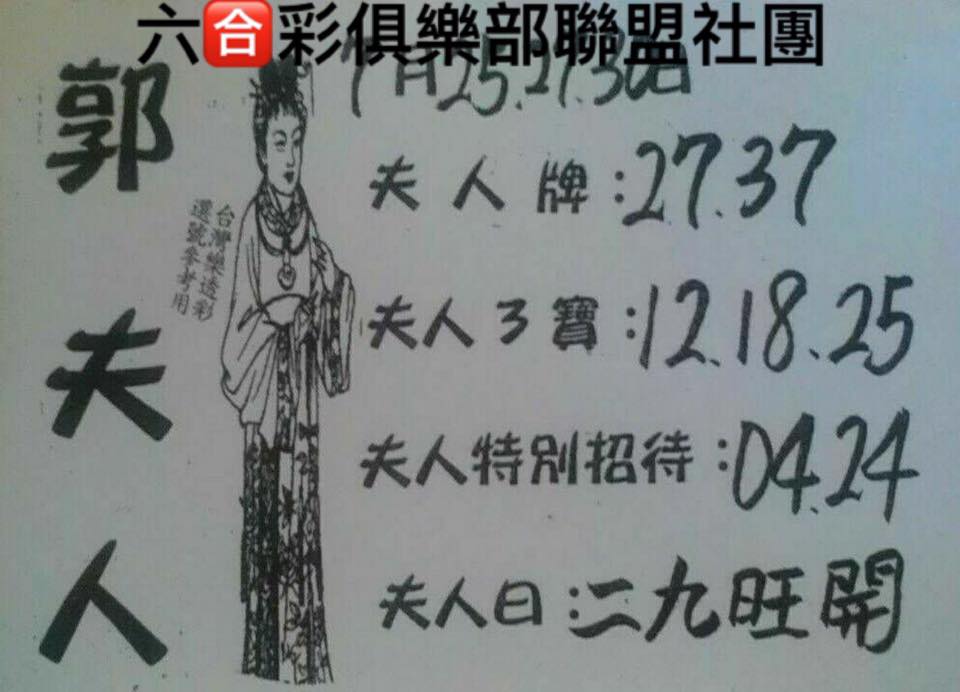 六合彩俱樂部聯盟社團
7月25.27.30日
郭夫人
台灣樂透彩
選號參考用
夫人牌:27.37
夫人3寶:12.18.25
夫人特別招待:04.24
夫人曰:二九旺開